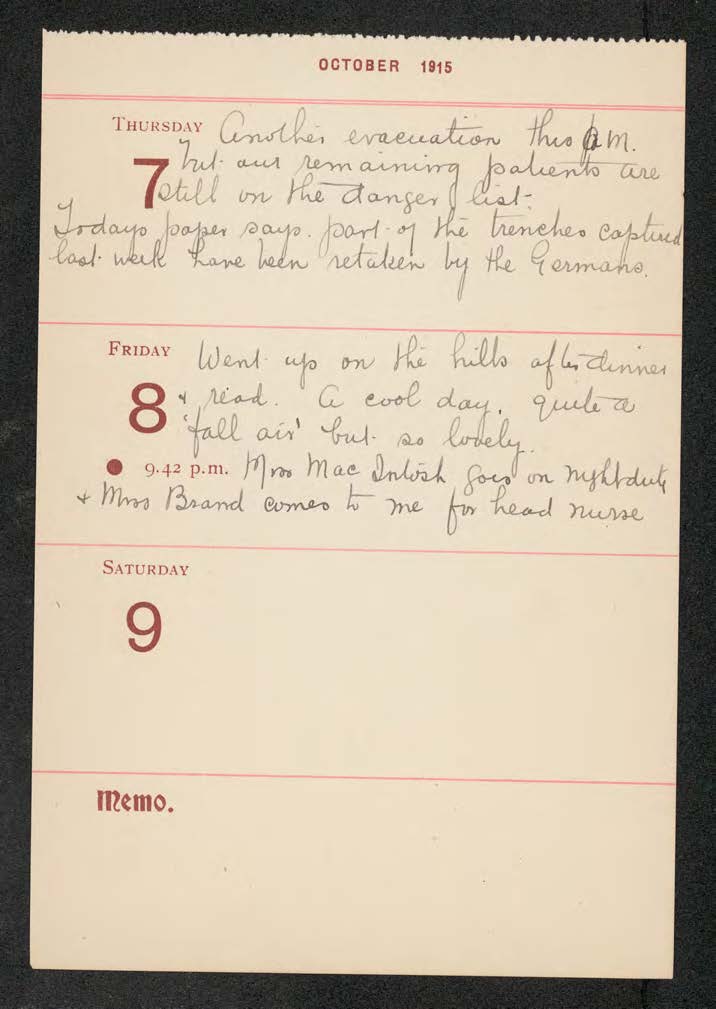 OCTOBER 1915
THURSDAY Another evacuation this p.m.
7 but our remaining patients are
still on the danger list.
Todays paper says part of the trenches captured
last week have been retaken by the Germans.
FRIDAY Went up on the hills after dinner
8 & read. A cool day, quite a
'fall air' but so lovely.
9.42 p.m. Miss MacIntosh goes on night duty
& Miss Brand comes to me for head nurse
SATURDAY
9
Memo.